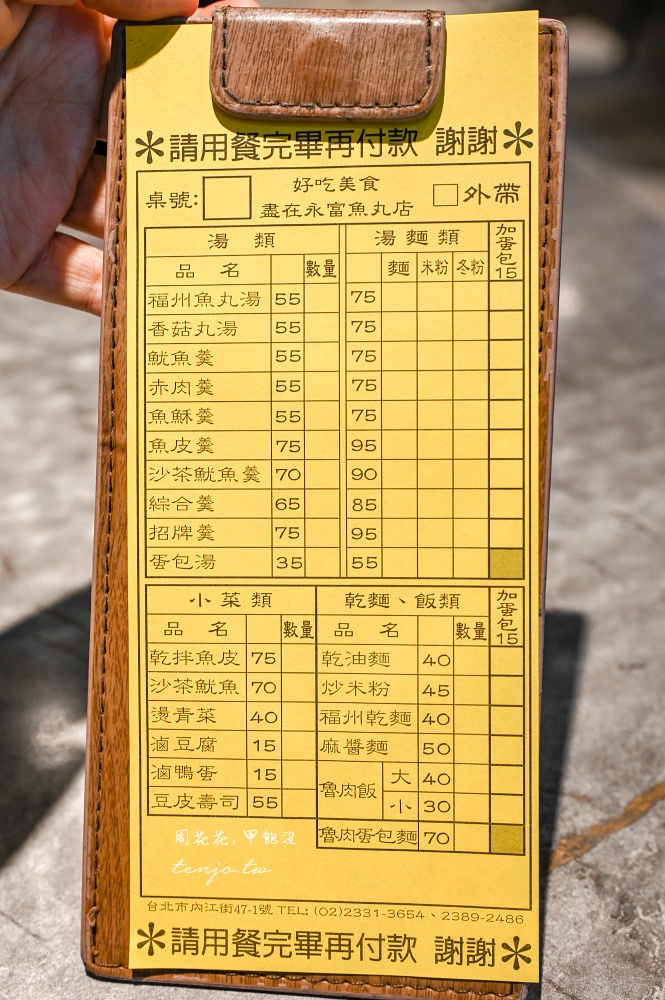 ＊請用餐完畢再付款 謝謝＊
桌號: 好吃美食 □外帶
盡在永富魚丸店
湯類 湯麵類 加蛋包15
品名 數量 麵 米粉 冬粉
福州魚丸湯 55 75
香菇丸湯 55 75
魷魚羹 55 75
赤肉羹 55 75
魚穌羹 55 75
魚皮羹 75 95
沙茶魷魚羹 70 90
綜合羹 65 85
招牌羹 75 95
蛋包湯 35 55
小菜類 乾麵、飯類 加蛋包15
品名 數量 品名 數量
乾拌魚皮 75 乾油麵 40
沙茶魷魚 70 炒米粉 45
燙青菜 40 福州乾麵 40
滷豆腐 15 麻醬麵 50
滷鴨蛋 15 魯肉飯 大 40
豆皮壽司 55 小 30
魯肉蛋包麵 70
周花花，甲飽沒
tenjo.tw
台北市內江街47-1號 TEL: (02)2331-3654、2389-2486
＊請用餐完畢再付款 謝謝＊